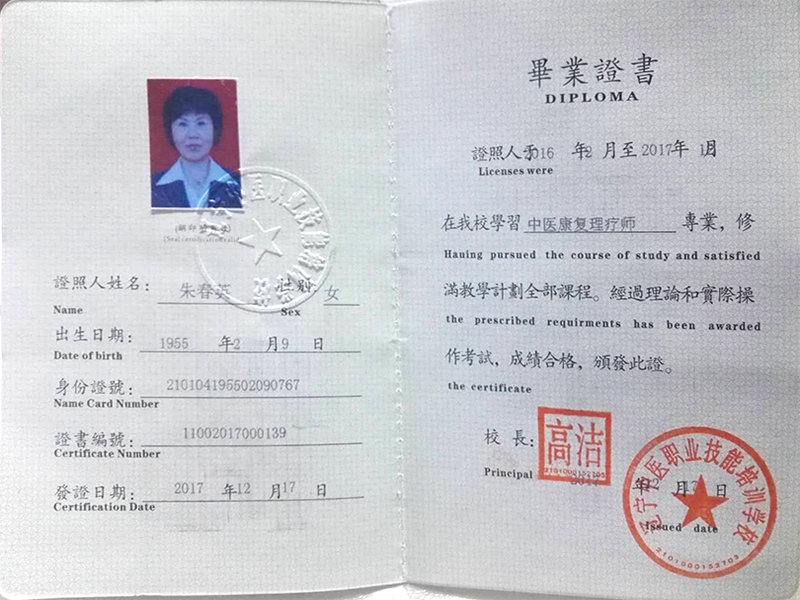 證照人姓名： 朱春英 性别 女
Name Sex
出生日期： 1955 年2 月9 日
Date of birth
身份證號： 210104195502090767
Name Card Number
證書編號： 11002017000139
Certificate Number
發證日期： 2017 年12 月17 日
Certification Date
畢業證書
DIPLOMA
證照人于2016 年2 月至2017年 1月
Licenses were
在我校學習 中医康复理疗师 專業，修
Hauing pursued the course of study and satisfied
滿教學計劃全部課程。經過理論和實際操
the prescribed requirments has been awarded
作考試，成績合格，頒發此證。
the certificate
校 長： 高洁
2101000152705
Principal
年12 月17 日
Issued date
辽宁中医职业技能培训学校
2101000152703